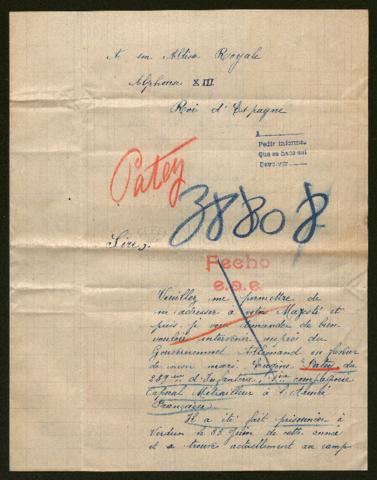 A son Altesse Royale
Alphonse XIII
Roi d'Espagne
A
Pedir informe.
Que se hace así
Devolver
Patey
38808
Sire,
Fecho
e.a.e.
Veuillez me permettre de
m'adresser à votre Majesté et
puis-je vous demander de bien
vouloir intervenir auprès du
Gouvernement Allemand en faveur
de mon mari. Eugène Patey du
289me d'Infanterie, compagnie
Caporal Mitrailleur à l'Armée
Française
Il a été fait prisonnier à
Verdun le 23 Juin de cette année
et se trouve actuellement au camp